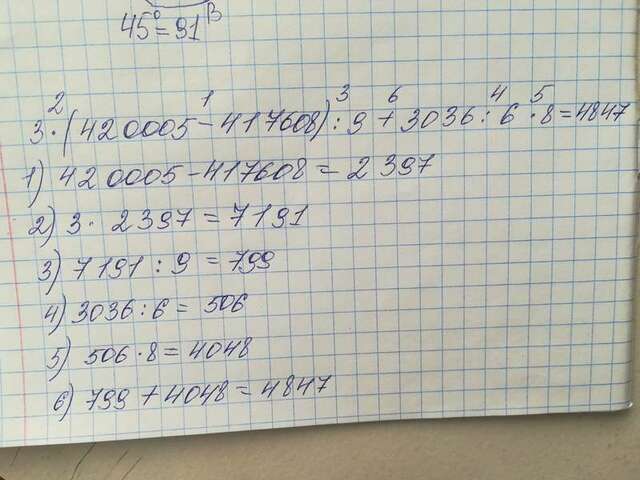 45°=91 В
2 1 3 6 4 5
3·(420005-417608):9+3036:6·8=4847
1) 420005-417608=2397
2) 3·2397=7191
3) 7191:9=799
4) 3036:6=506
5) 506·8=4048
6) 799+4048=4847